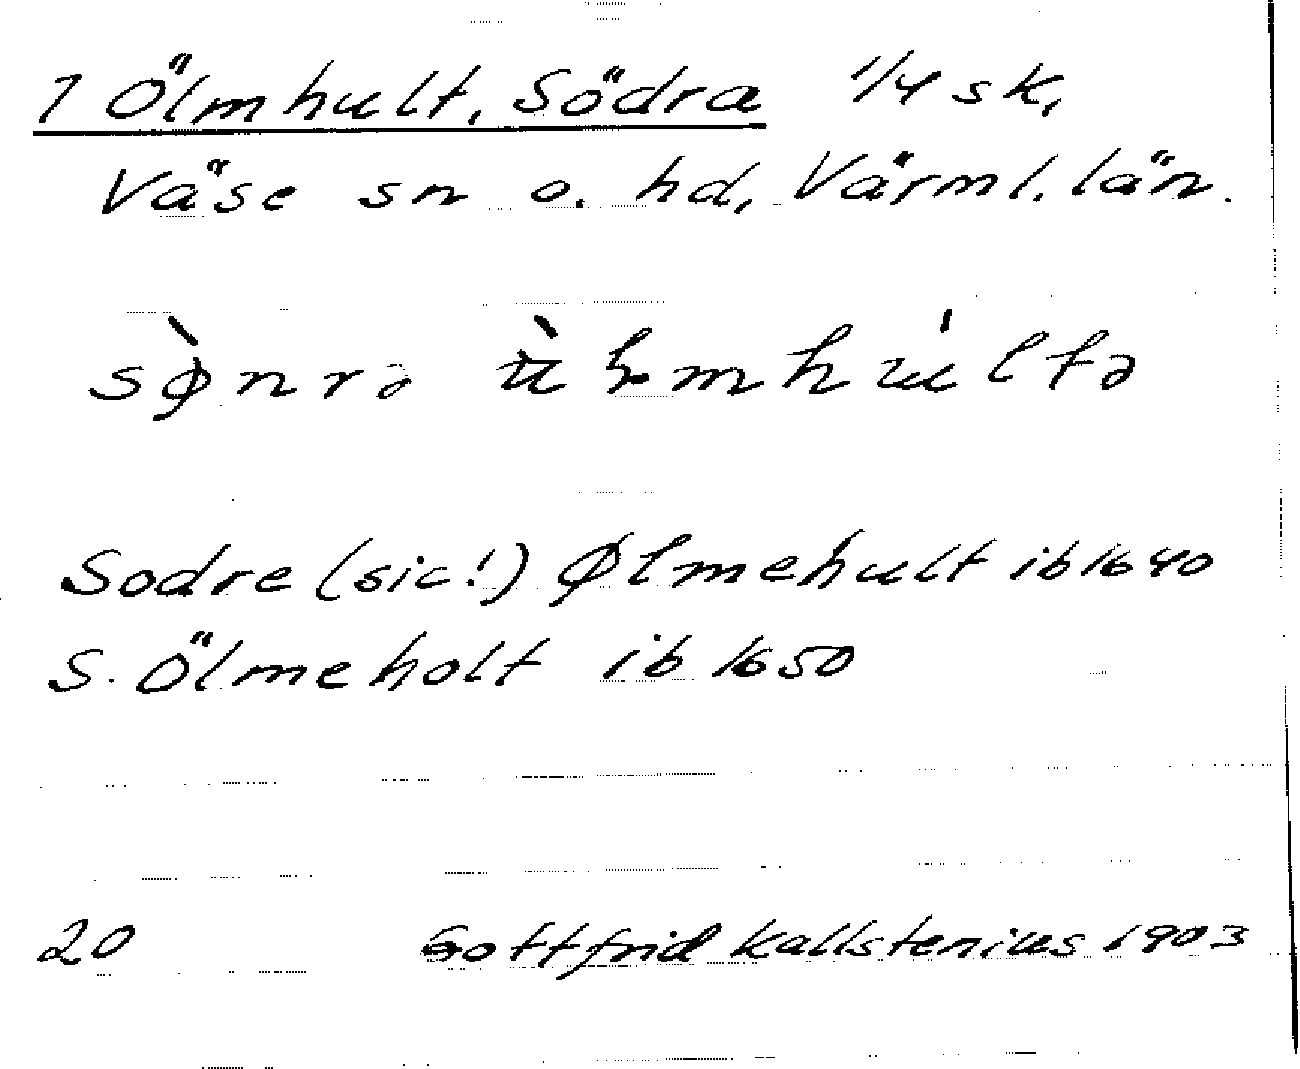 1 Ölmhult, Södra 1/4 sk,
Väse sn o. hd, Värml. län.
sø̀nrə
Sodre (sic!) Ølmehult ib 1640
S. Ölmeholt ib 1650
20 Gottfrid Kallstenius 1903